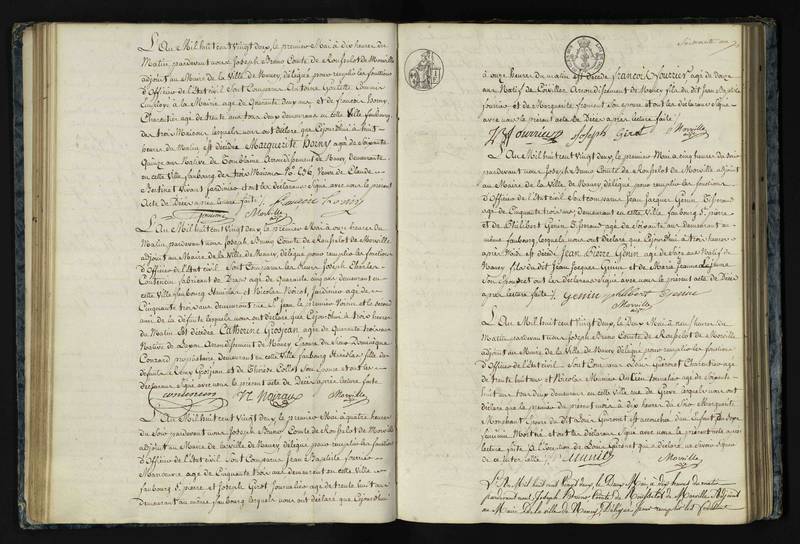 L'An Mil huit cent Vingt deux, le premier Mai à dix heures du
Matin pardevant nous Joseph Bruno Comte de Rousselot de Morville
adjoint au Maire de la Ville de Nancy, délégué pour remplir les fonctions
d'Officier de l'État civil Sont Comparus Antoine
Employé à la Mairie agé de Quarante deux ans et francois Dorny
Charcutier agé de trente un ans tous deux demeurans en cette Ville faubourg
des trois Maisons lesquels nous ont déclaré que Cejourd'hui à huit
heures du Matin est décédée Marguerite Dorny agée de Soixante
Quinze ans Native de arrondissement de Nancy demeurante
en cette Ville faubourg des trois Maisons No. 656 Veuve de Claude
Vivant Jardinier et ont les déclarans Signé avec nous le présent
Acte de Décès après lecture faite /. françois Dorny
Morville
adjt
L'An Mil huit cent Vingt deux, le premier Mai à onze heures du
Matin, pardevant nous Joseph Bruno Comte de Rousselot de Morville
adjoint au Maire de la Ville de Nancy, délégué pour remplir les fonctions
d'Officier de l'État civil Sont Comparus les Sieurs Joseph Charles
Contenein fabricant de Draps agé de Quarante cinq ans demeurant en
cette Ville faubourg Stanislas et Nicolas Noirot Jardinier agé de
Cinquante trois ans demeurant rue St. Jean le premier Voisin et le second
ami de la défunte lesquels nous ont déclaré que Cejourd'hui à trois heures
du Matin Est décédée Catherine Grosjean agée de Quarante trois ans
Native de arrondissement de Nancy Epouse de Sieur Dominique
propriétaire demeurant en cette Ville faubourg Stanislas fille des
defunts Remy Grosjean et de Thérèse Collot Son Epouse et ont les
déclarans Signé avec nous le présent acte de Décès après lecture faite
contenein N Noiraux Morville
adjt
L'An Mil huit cent Vingt deux, le premier Mai à quatre heures
du Soir pardevant nous Joseph Bruno Comte de Rousselot de Morville
adjoint au Maire de la Ville de Nancy délégué pour remplir les fonctions
d'Officier de l'État civil Sont Comparus Jean Baptiste fourrier
Manoeuvre agé de Cinquante trois ans demeurant en cette Ville
faubourg St. pierre et Joseph Girot Journalier agé de trente huit ans
demeurant au même faubourg lesquels nous ont déclaré que Cejourd'hui
Soixante un
à onze heures du matin est décédé francois fourrier agé de Douze
ans Natif de Arrondissement de Nancy fils du dit Jean Baptiste
fourrier et de Marguerite Son epouse et ont les déclarans Signé
avec nous le présent acte de Décès après lecture faite /.
fourrier Joseph Girot Morville
adjt
L'An Mil huit cent Vingt deux, le premier Mai à cinq heures du Soir
pardevant nous Joseph Bruno Comte de Rousselot de Morville adjoint
au Maire de la Ville de Nancy, délégué pour remplir les fonctions
d'Officier de l'Etat civil Sont Comparus Jean Jacques Genin
agé de Cinquante trois ans demeurant en cette Ville faubourg St. pierre
et Philibert Genin agé de Soixante ans demeurant au
même faubourg lesquels nous ont déclaré que Cejourd'hui à trois heures
après Midi est décédé Jean Pierre Genin agé de ans Natif de
Nancy fils du dit Jean Jacques Genin et de Marie Jeanne
Son Epouse et ont les déclarans Signé avec nous le présent acte de Décès
après lecture faite /. Genin philibert Genin
Morville
adjt
L'An Mil huit cent Vingt deux, le Deux Mai à neuf heures du
Matin pardevant nous Joseph Bruno Comte de Rousselot de Morville
adjoint au Maire de la Ville de Nancy délégué pour remplir les fonctions
d'Officier de l'État civil Sont Comparus Louis Guironet Charcutier agé
de trente huit ans et Nicolas Meunier agé de Soixante
huit ans tous deux demeurans en cette Ville rue de Grève lesquels nous ont
déclaré que le premier du présent mois à dix heures du Soir Marguerite
Epouse du dit Louis Guironet est accouchée d'un Enfant du Sexe
féminin Mort né et ont les déclarans Signé avec nous le présent acte après
lecture faite à l'exception de Louis Guironet qui a déclaré ne savoir signer
de ce interpellé /. Meunier Morville
adjt
L'An Mil huit cent Vingt deux, le Deux Mai à dix heures du matin
pardevant nous Joseph Bruno Comte de Rousselot de Morville Adjoint
au Maire de la ville de Nancy, délégué pour remplir les fonctions